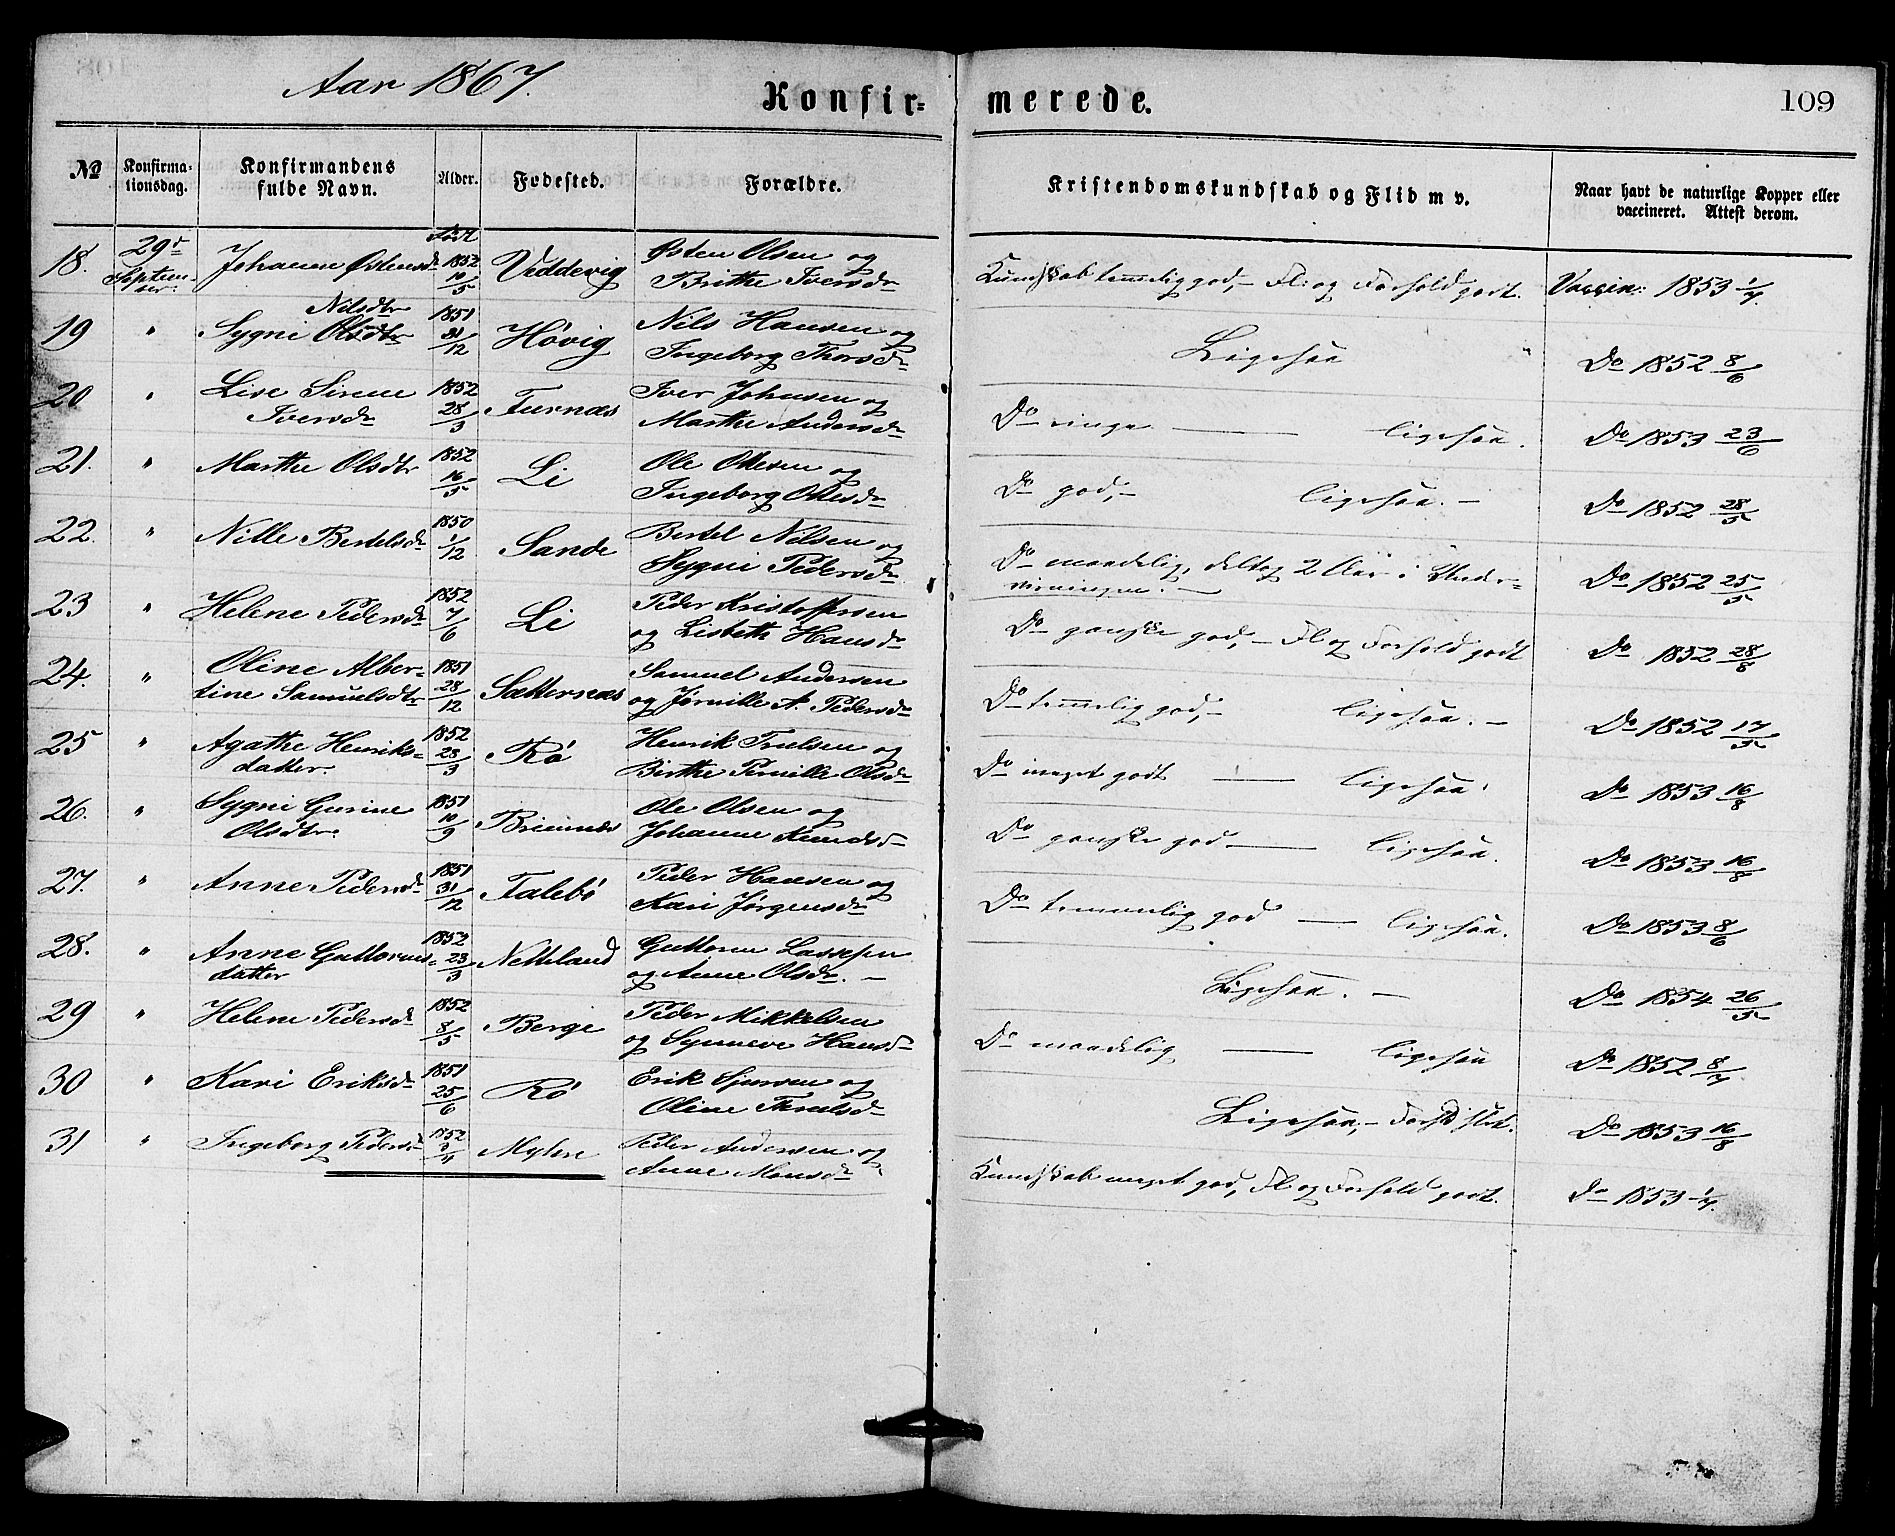 Aar 1867.
Konfir= merede.
109
No
Konfirma-
tionsdag.
Konfirmandens
fulde Navn.
Alder.
Fodested.
Forældre.
Kristendomskundskab og Flid m v.
Naar havt de naturlige Kopper eller
vaccineret. Attest derom.
18. 29d Septem-
ber. Johanne Østensdr Født 1852 10/5 Veddevig Østen Olsen og
Brithe Iversdr Kundskab temmelig god, - Fl. og Forhold godt. Vaccin: 1853 1/7
19 " Nilsdtr
Sygni Olsdtr 1851 31/12 Høvig Nils Hansen og
Ingeborg Thorsdr Ligesaa " Do 1852 8/6
20 " Lise Sirene
Iversdr 1852 28/3 Furnæs Iver Johnsen og
Marthe Andersdr Do ringe — ligesaa. Do 1853 23/6
21. " Marthe Olsdtr 1852 16/5 Li Ole Olsen og
Ingeborg Olsdr Do god, - ligesaa. - Do 1852 28/5
22. " Nille Bertelsdr 1850 1/12 Sande Bertel Nilsen og
Sygni Pedersdr Do maadelig, deltog 2 Aar i Under-
visningen. - Do 1852 25/5
23 " Helene Pedersdr 1852 7/6 Li Peder Kristoffersen
og Lisbeth Hansdr Do ganske god, - Fl og Forhold godt Do 1852 28/8
24. " Oline Alber-
tine Samuelsdtr 1851 28/12 Sætternæs Samuel Andersen
og Jørnille A. Pedersdr Do temmelig god, - ligesaa. - Do 1852 17/5
25 " Agathe Henriks-
datter. 1852 28/3 Rö Henrik Truelsen og
Birthe Pernille Olsdr Do meget godt — ligesaa. Do 1853 16/8
26. " Sygni Gurine
Olsdtr. 1851 10/9 Brimnes Ole Olsen og
Johanne Knudsd Do ganske god — ligesaa. Do 1853 16/8
27. " Anne Pedersdr 1851 31/12 Talebö Peder Hansen og
Kari Jørgensdr Do temmelig god — ligesaa. Do 1853 8/6
28. " Anne Guttorms-
datter 1852 23/3 Netteland Guttorm Lassesen
og Anne Olsdr. - Ligesaa. - Do 1854 26/5
29 " Helene Pedersdr 1852 8/5 Berge Peder Mikkelsen
og Synneve Hansd Do maadelig — ligesaa Do 1852 8/7
30 " Kari Eriksdr 1851 25/6 Rö Erik Sjursen og
Oline Thrulsdr Ligesaa, - Forhd slet. Do 1853 16/8
31 " Ingeborg Pedersdr 1852 Mylen Peder Andersen og
Anne Monsdr Kundskab meget god, Fl og Forhold godt. Do 1853 1/7.